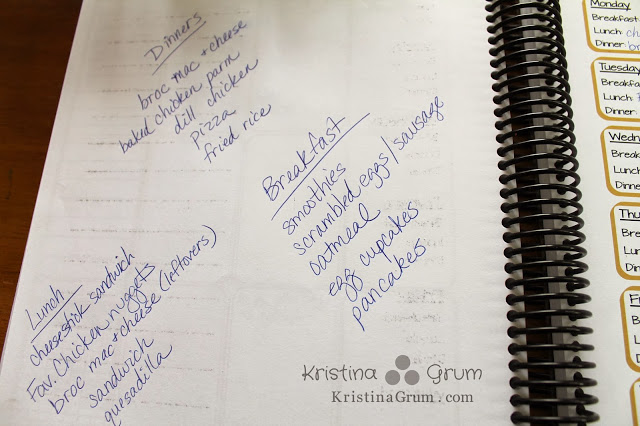 Dinners
broc mac + cheese
baked chicken parm
dill chicken
pizza
fried rice
Breakfast
smoothies
scrambled eggs/sausage
oatmeal
egg cupcakes
pancakes
Lunch
cheesestick sandwich
Fav. Chicken nuggets
broc mac + cheese (leftovers)
sandwich
quesadilla
Monday
Breakfast:
Lunch: ch
Dinner: br
Tuesday
Breakfa
Lunch:
Dinner:
Wedn
Brea
Lunch
Dinne
Thu
Bre
Lun
Din
F
Br
Lu
Di
Kristina Grum
KristinaGrum.com